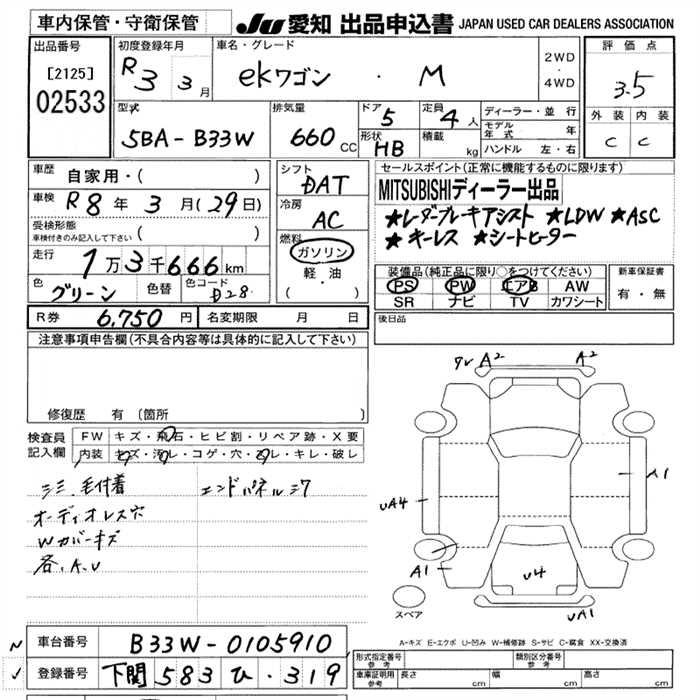 車内保管・守衛保管 JU 愛知 出品申込書 JAPAN USED CAR DEALERS ASSOCIATION
出品番号 初度登録年月 車名・グレード 2WD・4WD 評価点
[2125] R3 3月 ekワゴン・M 3.5
02533 型式 排気量 ドア 5 定員 4人 ディーラー・並行 外装 内装
5BA-B33W 660CC 形状 HB 積載 kg モデル年式 年 C C
ハンドル 左・右
車歴 自家用・( ) シフト DAT セールスポイント(正常に機能するものに限ります)
車検 R8年3月(29日) 冷房 AC MITSUBISHIディーラー出品
受検形態 車検付きのみ記入して下さい ( ) 燃料 ★レーダーブレーキアシスト ★LDW ★ASC
走行 1万3千666km ガソリン ★キーレス ★シートヒーター
軽・油
(・) 装備品(純正品に限り○をつけてください) 新車保証書
色 グリーン 色替 色コード D28 PS PW エアB AW 有・無
SR ナビ TV カワシート
R券 6,750円 名変期限 月 日 後日品
注意事項申告欄(不具合内容等は具体的に記入して下さい)
修復歴 有 (箇所
検査員記入欄 FW キズ・飛石・ヒビ割・リペア跡・X要
内装 キズ・汚レ・コゲ・穴・ネレ・キレ・破レ
毛付着 エンドパネル
オーディオレス穴
Wカバーキズ
各.A.U
A2 A2
A1
UA4
A1 U4
UA1
スペア
A-キズ E-エクボ U-凹み W-補修跡 S-サビ C-腐食 XX-交換済
車台番号 B33W-0105910 形式指定番号 参考 類別区分番号 参考
登録番号 下関 583 ひ・319 車庫証明用 参考 長さ cm 幅 cm 高さ cm